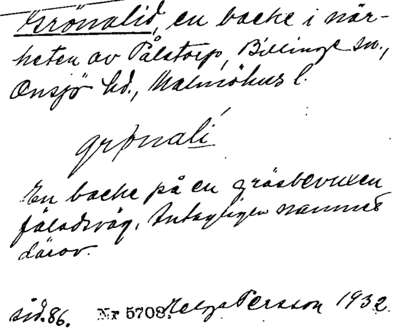 Grönalid, en backe i när-
heten av Pålstorp, Billinge sn.,
Onsjö hd., Malmöhus l.
grønali
En backe på en gräsbevuxen
fäladsväg. Antagligen namnet
därav.
sid. 86. Nr 5708. Helga Persson 1932.